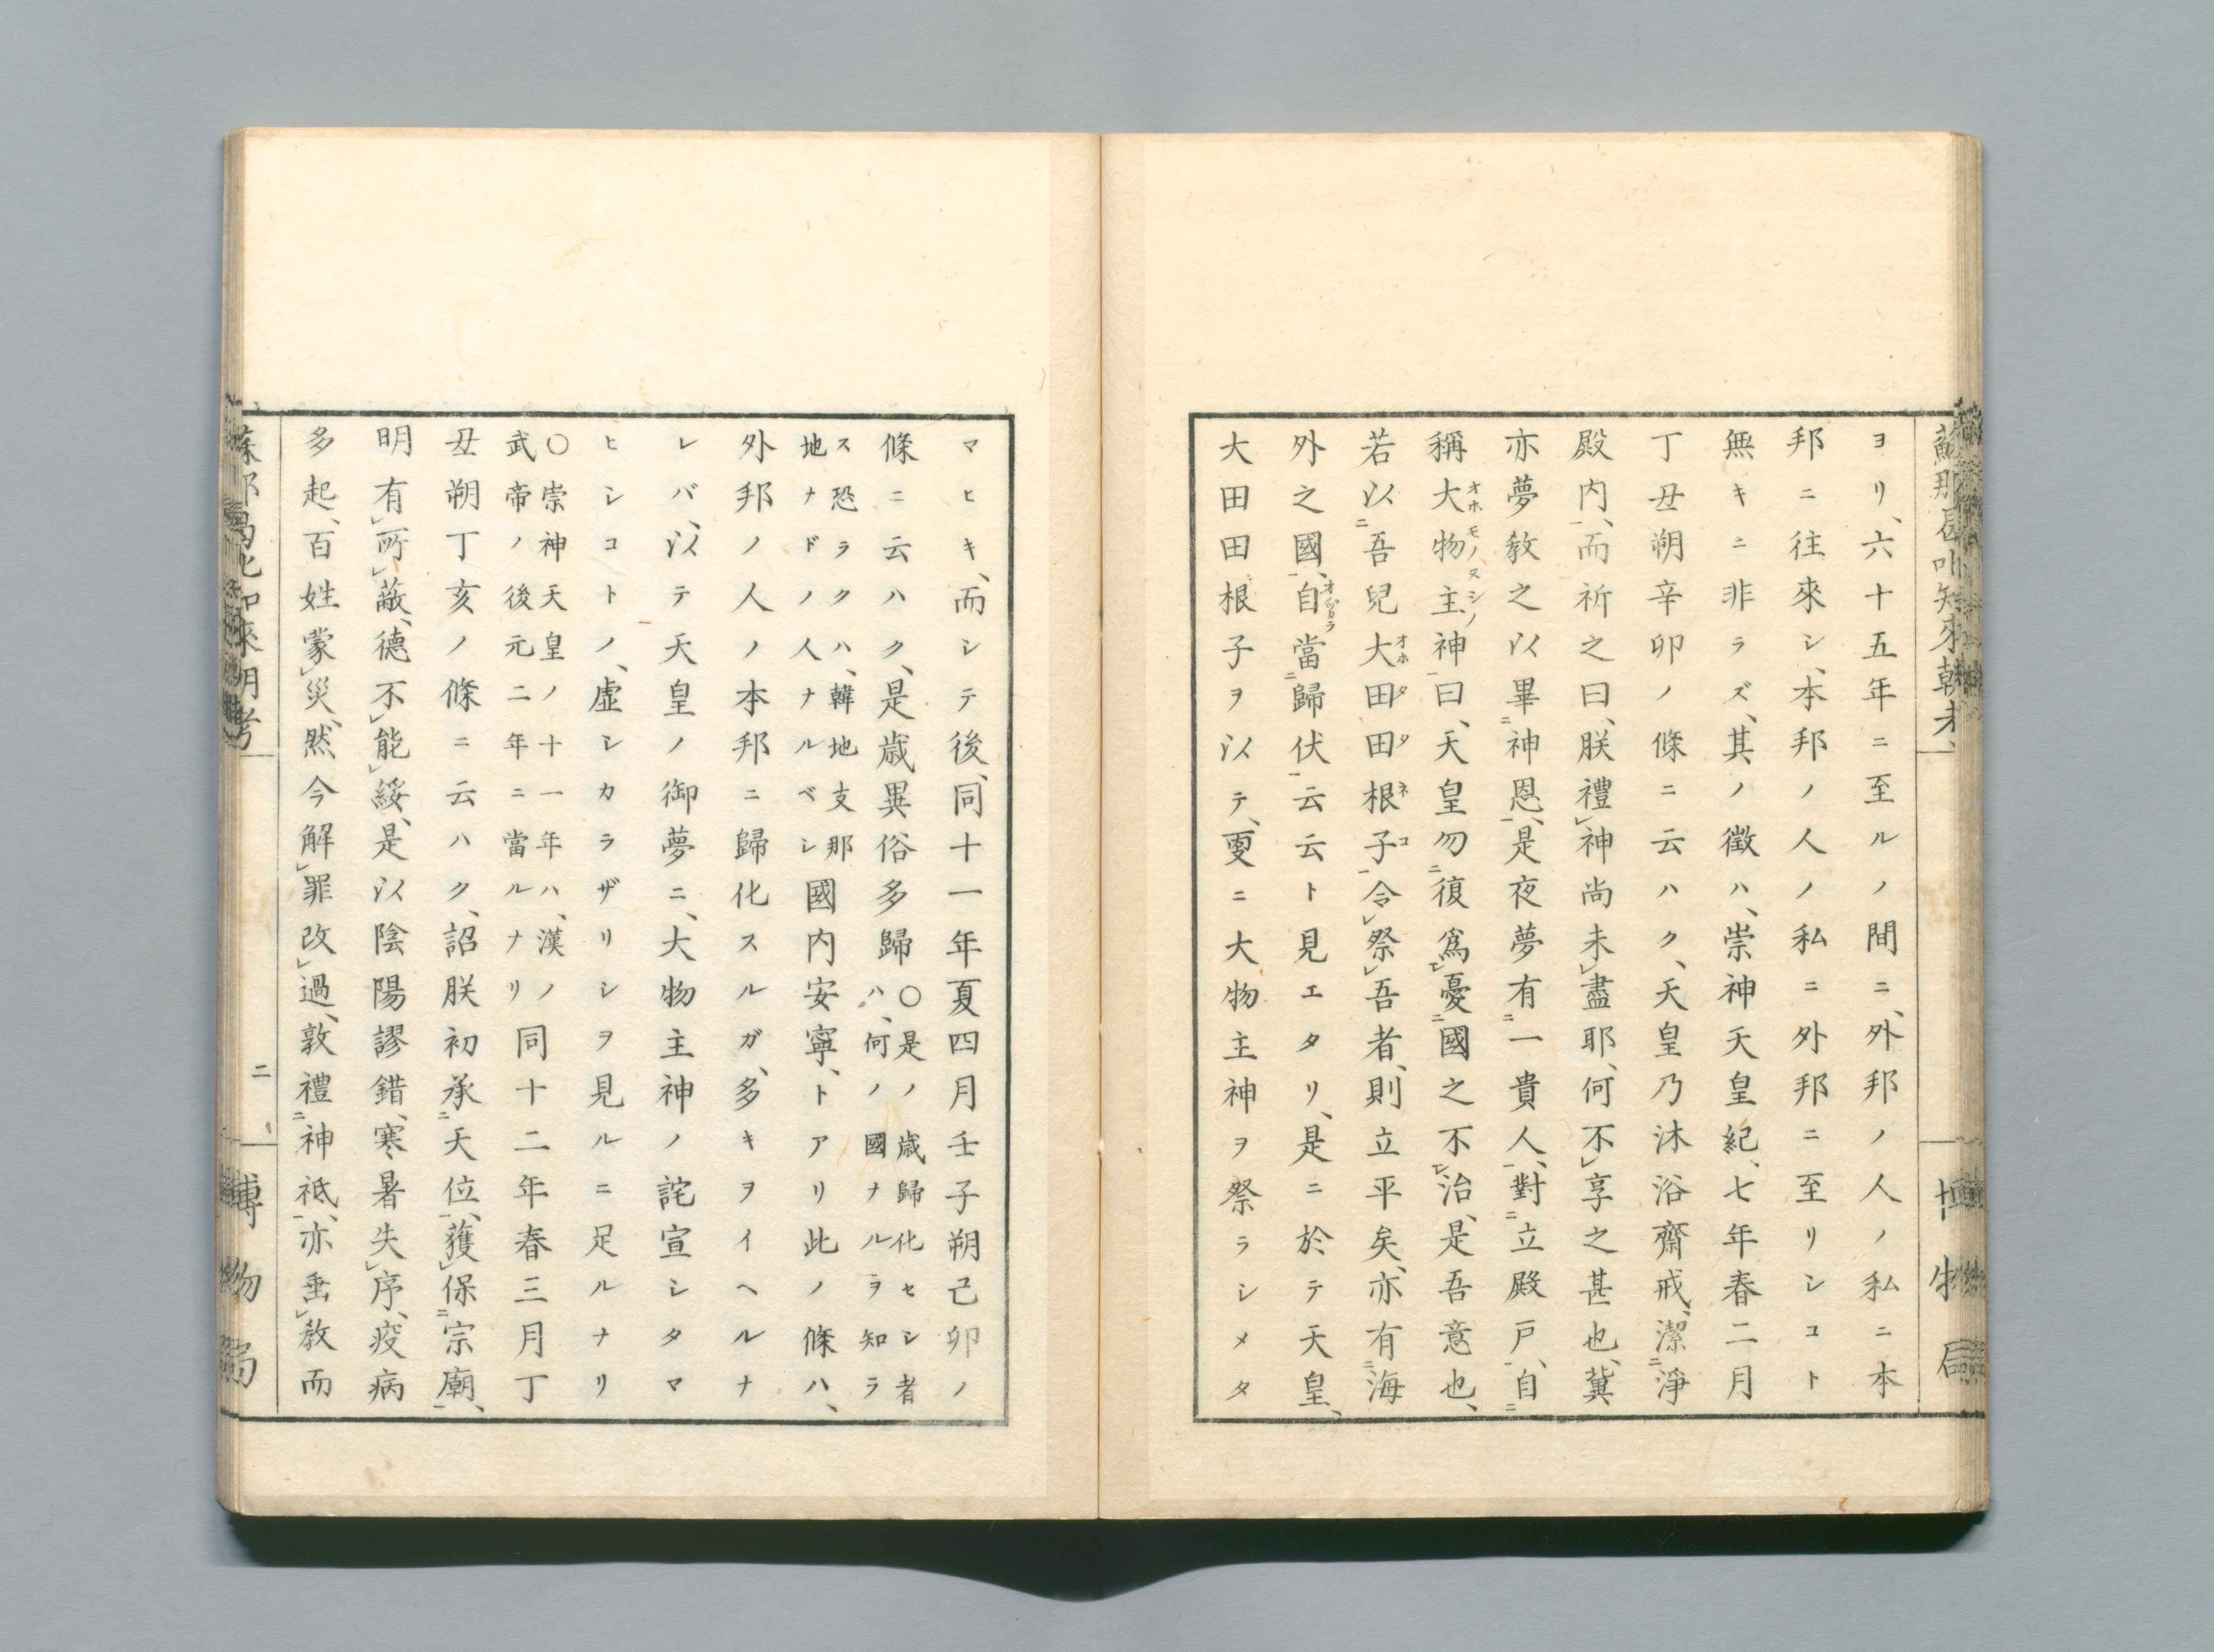 ヨリ、六十五年ニ至ルノ間ニ、外邦ノ人ノ私ニ本
邦ニ往來シ、本邦ノ人ノ私ニ外邦ニ至リシコト
無キニ非ラズ、其ノ徵ハ、崇神天皇紀、七年春二月
丁丑朔辛卯ノ條ニ云ハク、天皇乃沐浴齋戒、潔淨
殿内、而祈之曰、朕禮神尚未盡耶、何不享之甚也、冀
亦夢敎之以畢神恩、是夜夢有一貴人、對立殿戸、自
稱大物主神曰、天皇勿復爲憂國之不治、是吾意也、
若以吾兒大田田根子令祭吾者、則立平矣、亦有海
外之國、自當歸伏云云ト見エタリ、是ニ於テ天皇、
大田田根子ヲ以テ、更ニ大物主神ヲ祭ラシメタ
マヒキ、而シテ後、同十一年夏四月壬子朔己卯ノ
條ニ云ハク、是歳異俗多歸〇是ノ歳歸化セシ者ハ、何ノ國ナルヲ知ラ
ス恐ラクハ、韓地支那地ナドノ人ナルベシ國内安寧、トアリ此ノ條ハ、
外邦ノ人ノ本邦ニ歸化スルガ、多キヲイヘルナ
レバ、以テ天皇ノ御夢ニ、大物主神ノ詫宣シタマ
ヒシコトノ、虛シカラザリシヲ見ルニ足ルナリ
〇崇神天皇ノ十一年ハ、漢ノ武帝ノ後元二年ニ當ルナリ同十二年春三月丁
丑朔丁亥ノ條ニ云ハク、詔朕初承天位、獲保宗廟、
明有所蔽、德不能綏、是以陰陽謬錯、寒暑失序、疫病
多起、百姓蒙災、然今解罪改過、敦禮神祇、亦垂敎而
二
博物局